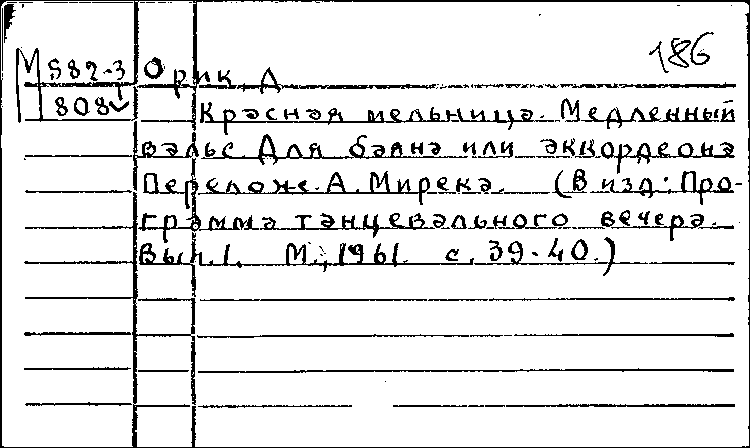 186
М 582-3 Орик, Д
808
Красная мельница. Медленный
вальс. Для баяна или аккордеона
Перелож. А. Мирека. (В изд: Про-
грамма танцевального вечера.
Вып. 1. М., 1961. с. 39-40.)